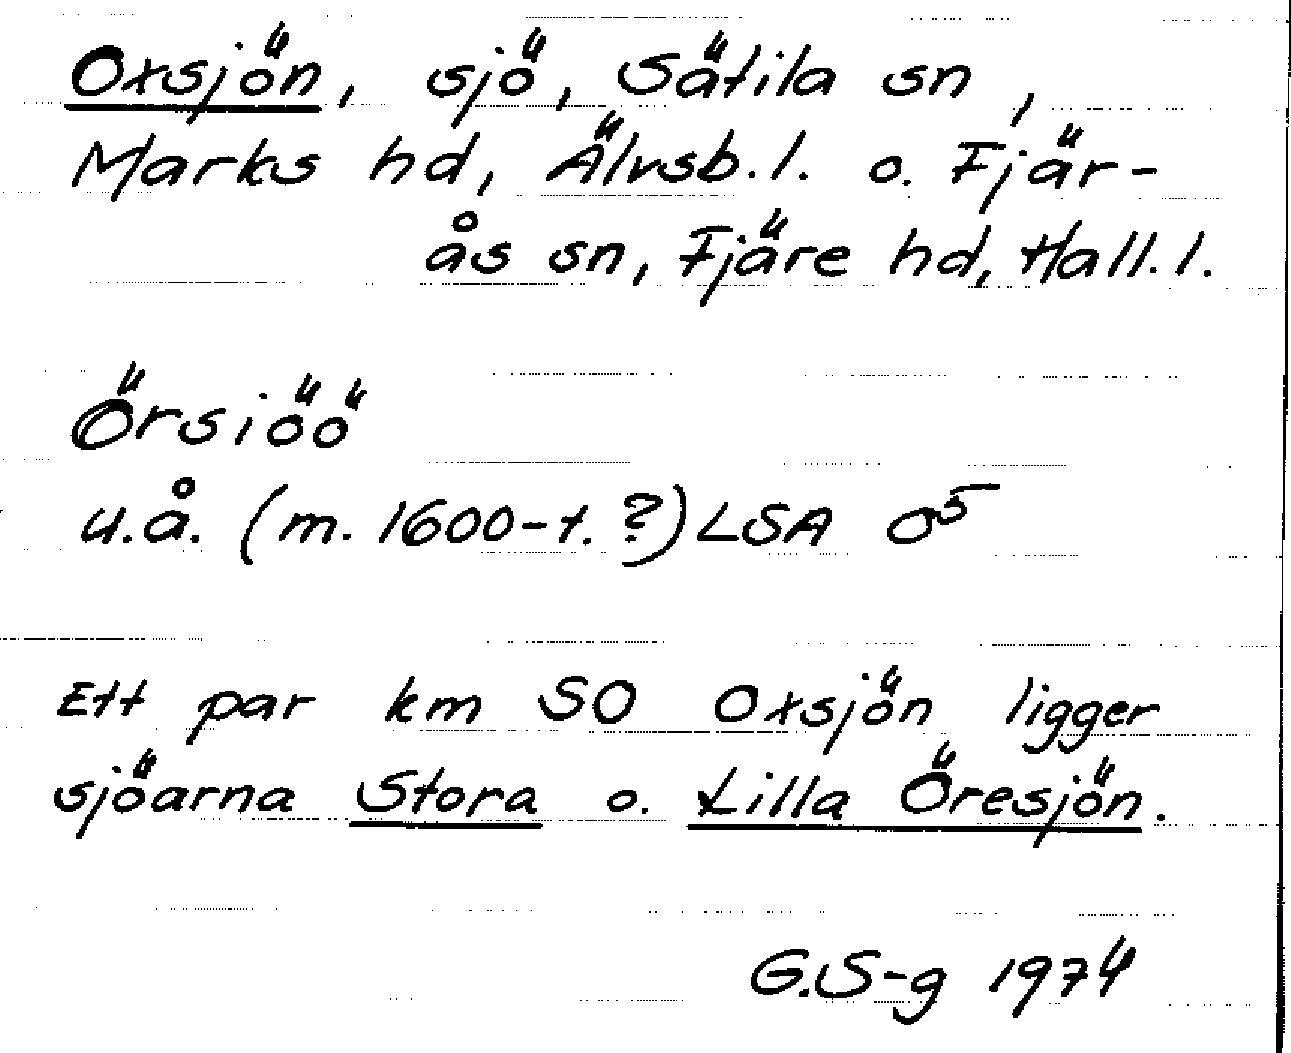 Oxsjön, sjö, Sätila sn,
Marks hd, Älvsb. l. o. Fjär-
ås sn, Fjäre hd, Hall. l.
Örsiöö
u.å. (m. 1600-t. ?) LSA O⁵
Ett par km SO Oxsjön ligger
sjöarna Stora o. Lilla Öresjön.
G.S-g 1974